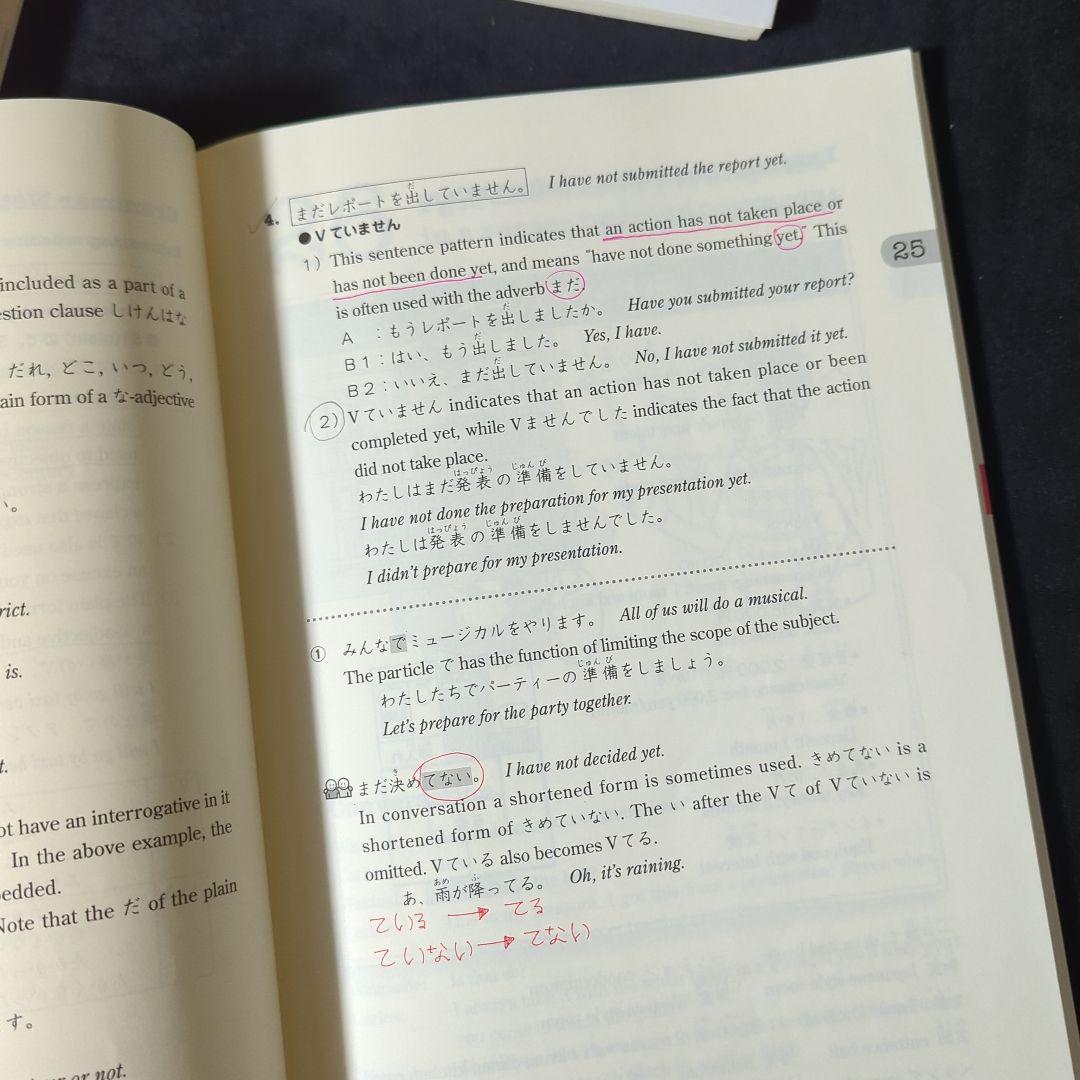 included as a part of a
estion clause しけんはな
だれ, どこ, いつ, どう,
ain form of a な-adjective
い。
rict.
is.
t.
ot have an interrogative in it
In the above example, the
bedded.
Note that the だ of the plain
す。
or not.
4. まだレポートを出していません。 I have not submitted the report yet.
●Vていません
1) This sentence pattern indicates that an action has not taken place or
has not been done yet, and means "have not done something yet." This
is often used with the adverb まだ.
A :もうレポートを出しましたか。 Have you submitted your report?
B1:はい、もう出しました。 Yes, I have.
B2:いいえ、まだ出していません。 No, I have not submitted it yet.
2) Vていません indicates that an action has not taken place or been
completed yet, while Vませんでした indicates the fact that the action
did not take place.
わたしはまだ発表の準備をしていません。
I have not done the preparation for my presentation yet.
わたしは発表の準備をしませんでした。
I didn't prepare for my presentation.
① みんなでミュージカルをやります。 All of us will do a musical.
The particle で has the function of limiting the scope of the subject.
わたしたちでパーティーの準備をしましょう。
Let's prepare for the party together.
まだ決めてない。 I have not decided yet.
In conversation a shortened form is sometimes used. きめてない is a
shortened form of きめていない. The い after the Vて of Vていない is
omitted. Vている also becomes Vてる.
あ、雨が降ってる。 Oh, it's raining.
ている → てる
ていない → てない
25